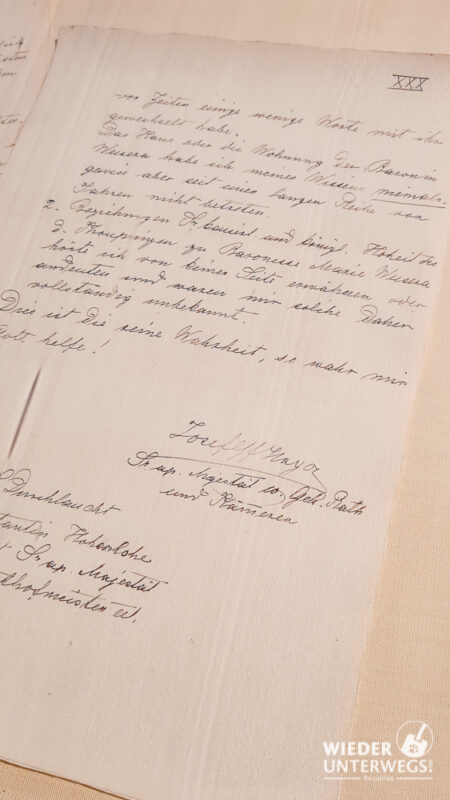 XXX
vor Zeiten einige wenige Worte mit ihr
gewechselt habe.
Das Haus oder die Wohnung der Baronin
Vecsera habe ich meines Wissens niemals,
gewis aber seit einer langen Reihe von
Jahren nicht betreten.
2. Beziehungen Sr. kaiserl. und königl. Hoheit des
d. Kronprinzen zu Baronesse Marie Vecsera
hörte ich von keiner Seite erwähnen oder
andeuten und waren mir solche daher
vollständig unbekannt.
Dies ist die reine Wahrheit, so wahr mir
Gott helfe!
Josef
Sr. ap. Majestät w. Geh. Rath
und Kämmerer
Durchlaucht
Constantin Hohenlohe
Sr. ap. Majestät
Obersthofmeister etc.
WIEDER
UNTERWEGS!